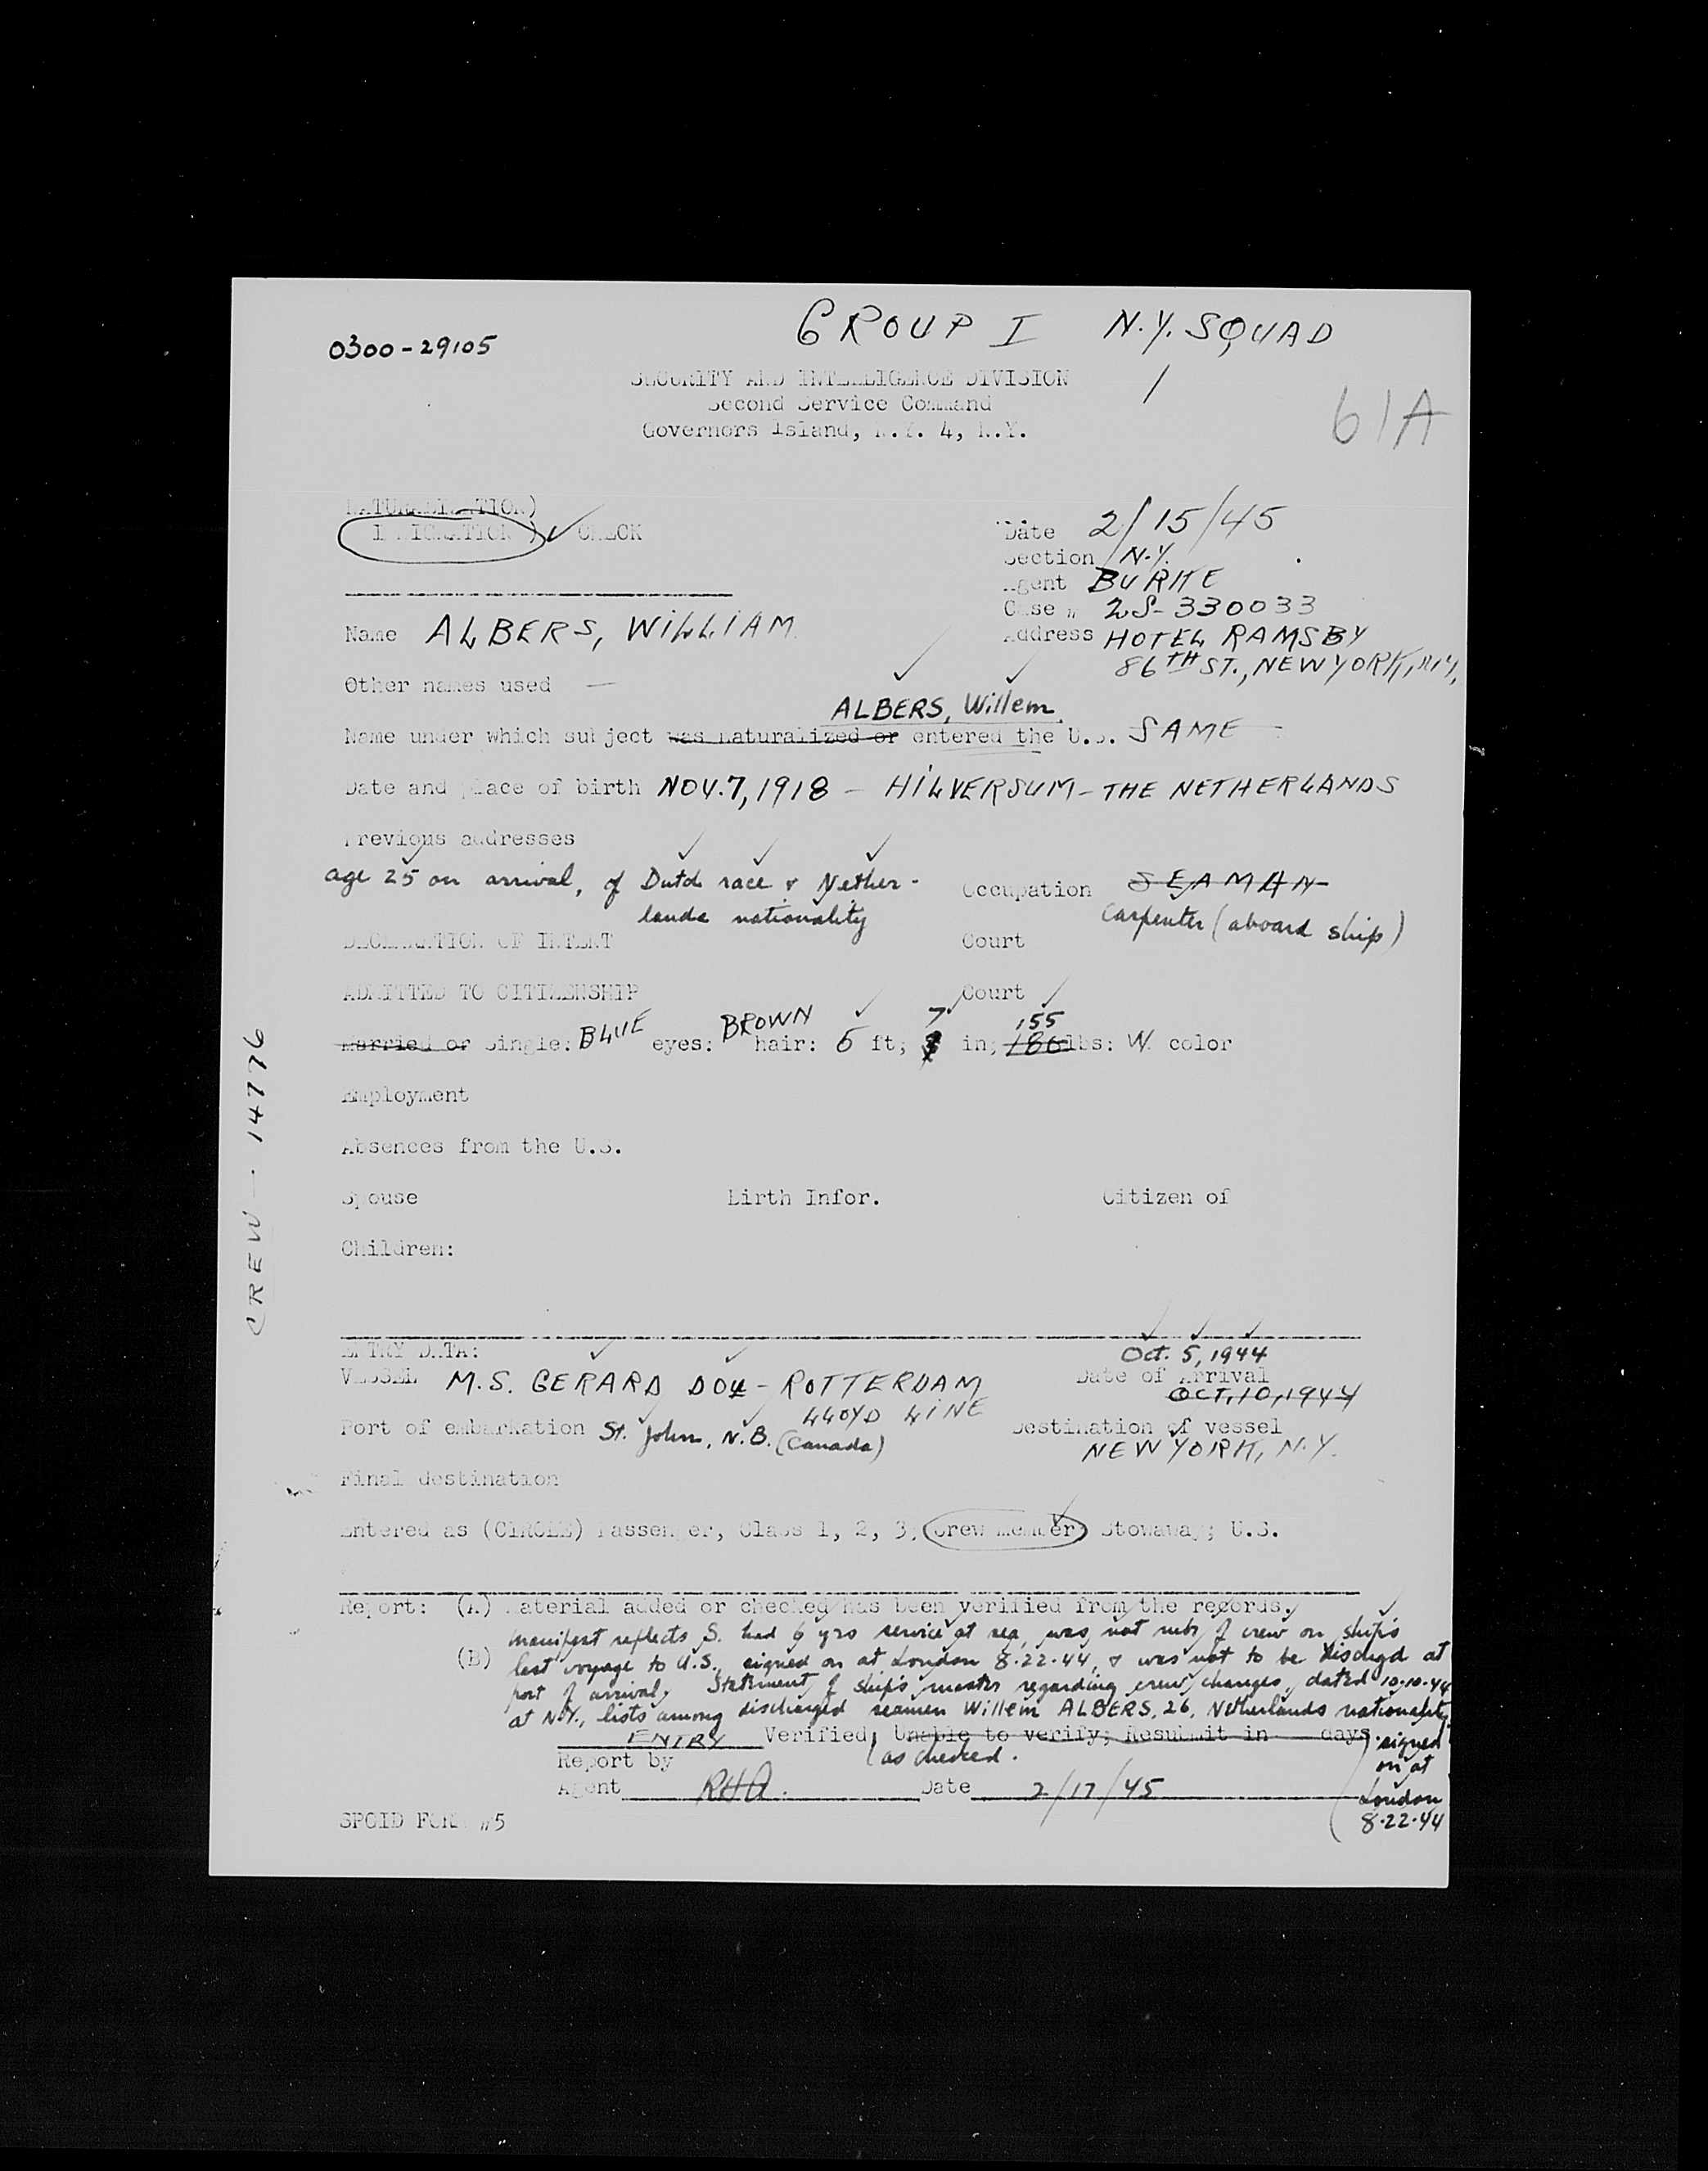 GROUP I N.Y. SQUAD
0300-29105
1
61A
SECURITY AND INTELLIGENCE DIVISION
Second Service Command
Governors Island, N.Y. 4, N.Y.
NATURALIZATION)
IMMIGRATION ) ✓ CHECK
Date 2/15/45
Section N.Y.
Agent BURKE
Case # 2S-330033
Name ALBERS, WILLIAM
Address HOTEL RAMSBY
86TH ST., NEW YORK, N.Y.
Other names used —
ALBERS, Willem
Name under which subject was naturalized or entered the U.S. SAME
Date and place of birth NOV. 7, 1918 - HILVERSUM - THE NETHERLANDS
Previous addresses
age 25 on arrival, of Dutch race & Nether-
lands nationality
Occupation SEAMAN
Carpenter (aboard ship)
DECLARATION OF INTENT Court
ADMITTED TO CITIZENSHIP Court
Married or Single: BLUE eyes: BROWN hair: 5 ft; 7 in; 186 155 lbs: W. color
Employment
Absences from the U.S.
Spouse Birth Infor. Citizen of
Children:
CREW - 14776
ENTRY DATA:
Oct. 5, 1944
VESSEL M.S. GERARD DOU - ROTTERDAM
LLOYD LINE
Date of Arrival
OCT. 10, 1944
Port of embarkation St. John, N.B. (Canada)
Destination of vessel
NEW YORK, N.Y.
Final destination
Entered as (CIRCLE) Passenger, Class 1, 2, 3, Crew member, Stowaway; U.S.
Report: (A) Material added or checked has been verified from the records.
(B) Manifest reflects S. had 6 yrs service at sea, was not mbr of crew on ship's
last voyage to U.S., signed on at London 8-22-44, & was not to be dischgd at
port of arrival. Statement of ship's master regarding crew changes, dated 10-10-44
at N.Y., lists among discharged seamen Willem ALBERS, 26, Netherlands nationality
signed
on at
London
8-22-44
ENTRY Verified; Unable to verify; Resubmit in days.
as checked.
Report by
Agent RHA. Date 2/17/45
SPOID FORM #5